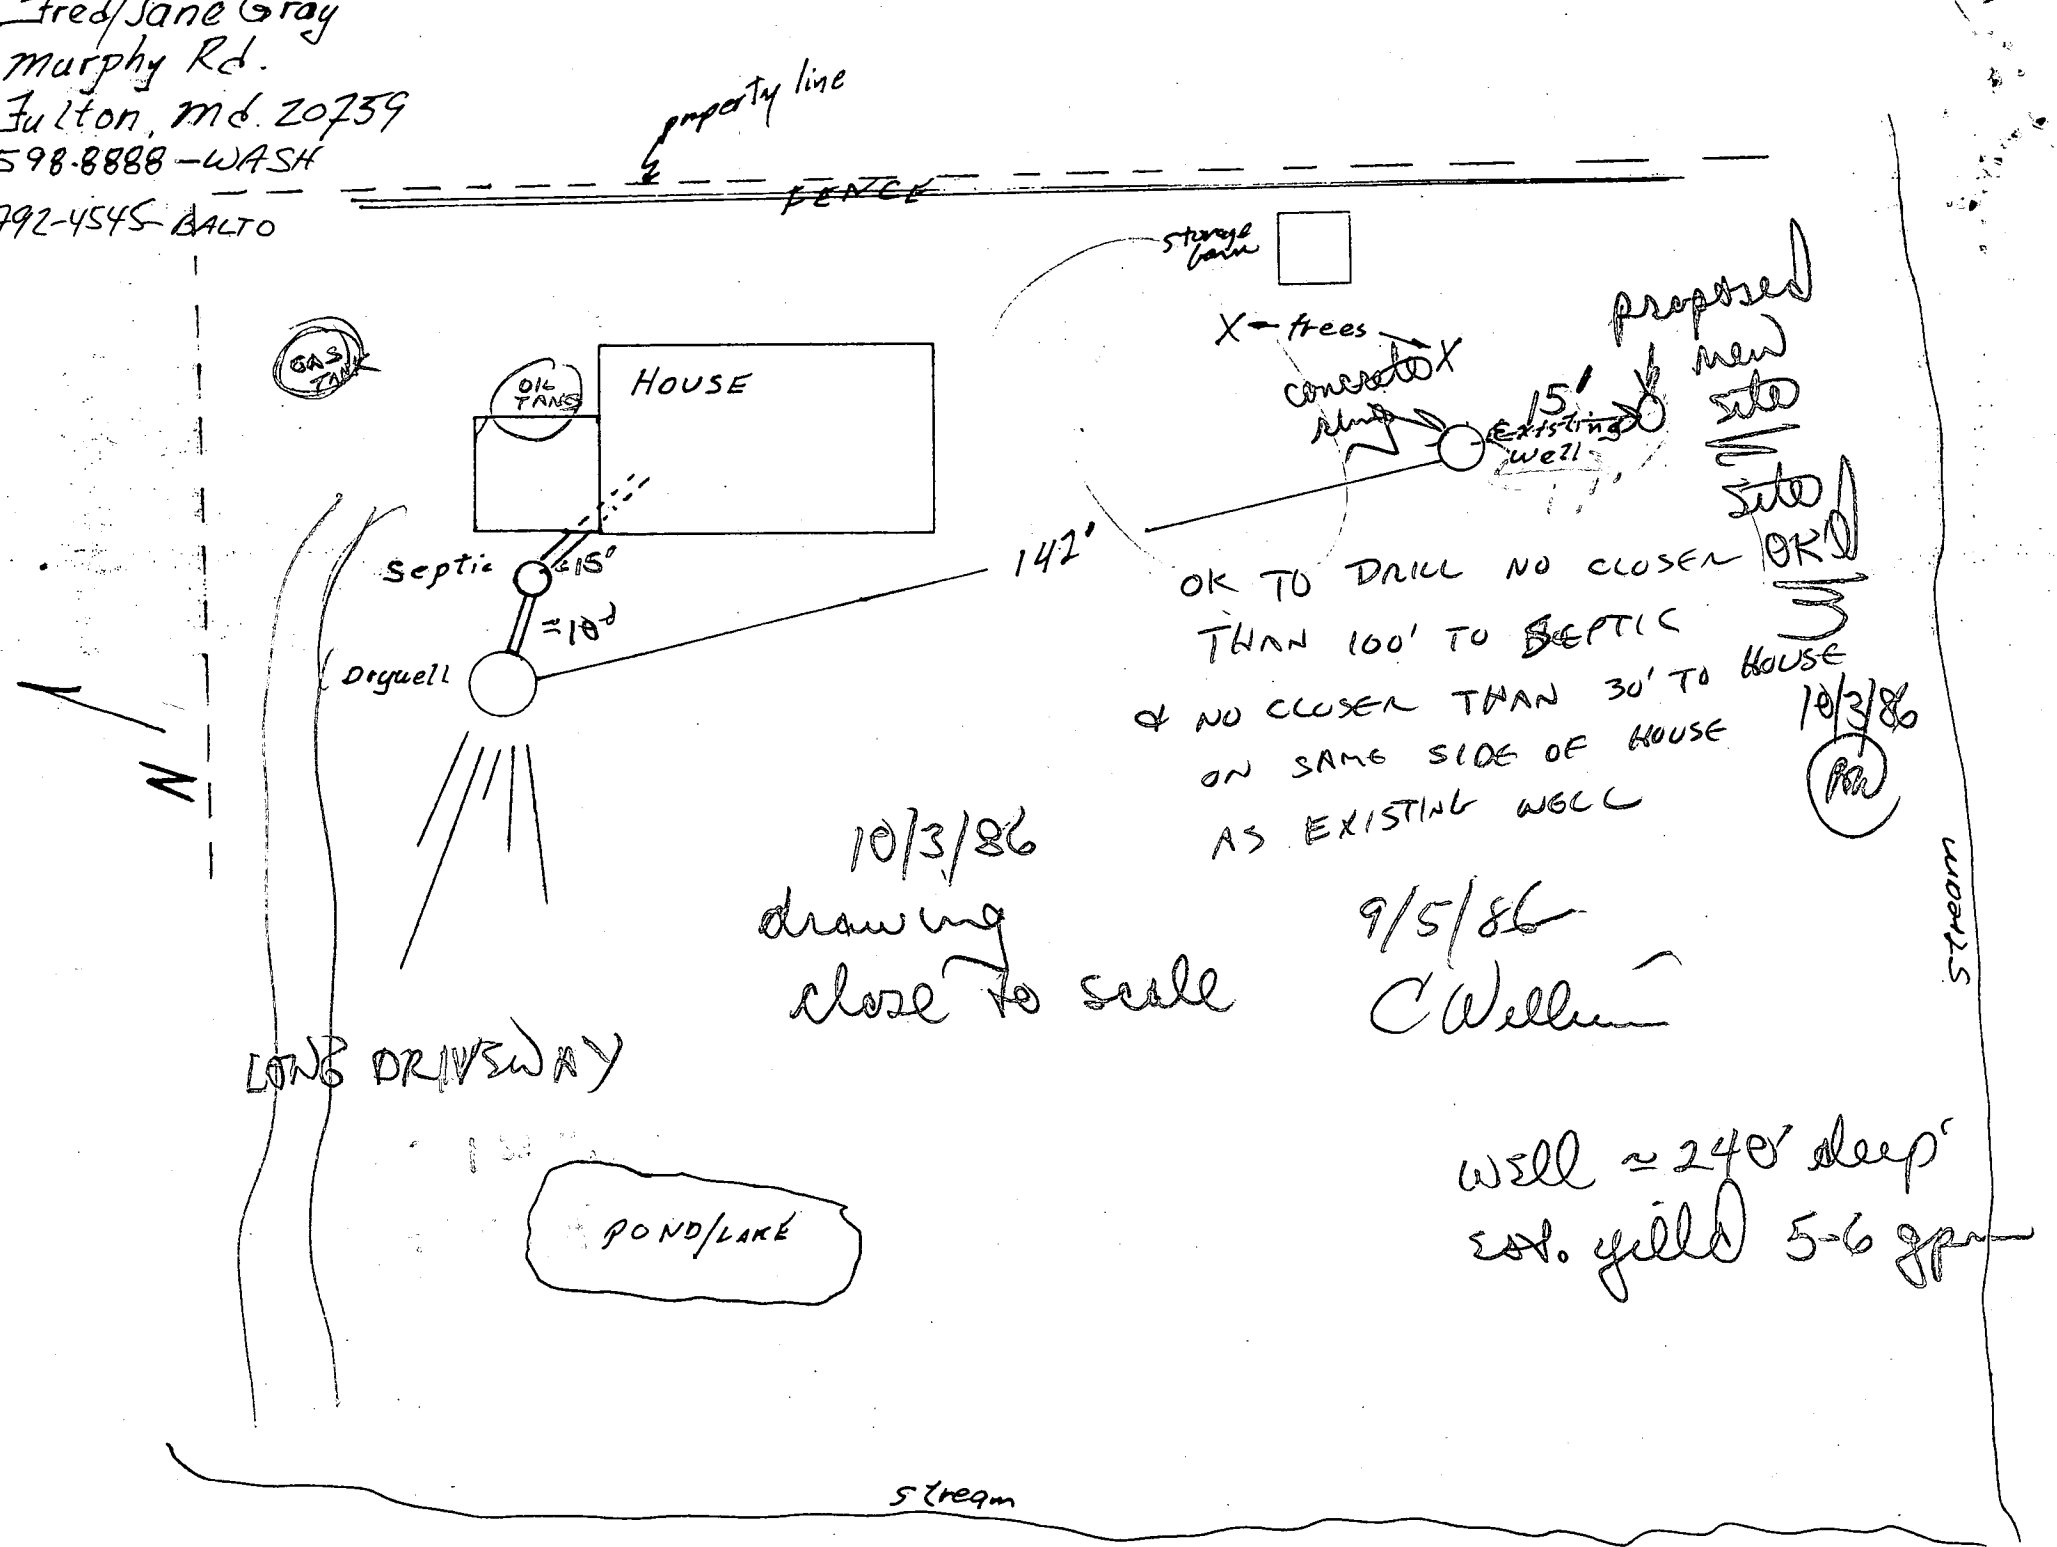 Fred/Jane Gray
Murphy Rd.
Fulton, Md. 20759
598-8888-WASH
792-4545-BALTO
property line
FENCE
storage
barn
GAS
TANK
OIL
TANK
HOUSE
X trees X
concrete
ring
15'
Existing
well
proposed
new
site
site
OK'd
Septic
≈15'
≈10'
Drywell
142'
N
OK TO DRILL NO CLOSER
THAN 100' TO SEPTIC
& NO CLOSER THAN 30' TO HOUSE
ON SAME SIDE OF HOUSE
AS EXISTING WELL
10/3/86
10/3/86
drawing
close to scale
9/5/86
C Williams
stream
LONG DRIVEWAY
POND/LAKE
well ≈ 240' deep
est. yield 5-6 gpm
stream